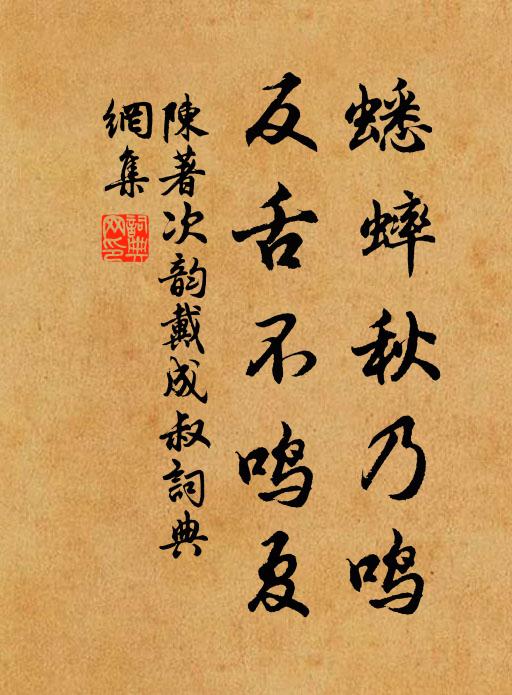 蟋蟀秋乃鸣
反舌不鸣夏
陳著次韵戴成叔詞典
網集
詞典網印